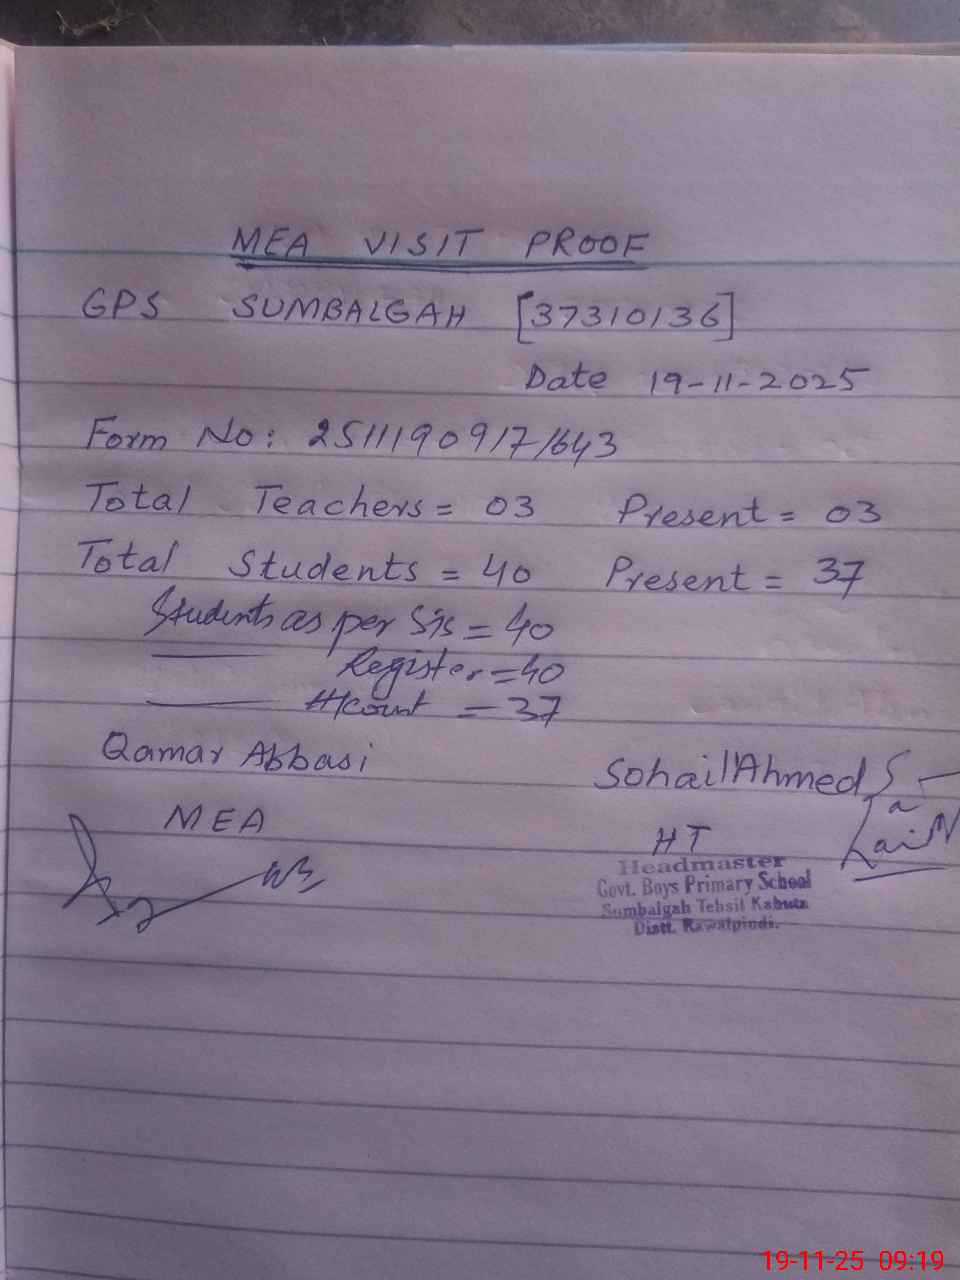 MEA VISIT PROOF
GPS SUMBALGAH [37310136]
Date 19-11-2025
Form No: 25111909171643
Total Teachers = 03 Present = 03
Total Students = 40 Present = 37
Students as per SIS = 40
Register = 40
H/count = 37
Qamar Abbasi
Sohail Ahmed
MEA
HT
Headmaster
Govt. Boys Primary School
Sumbalgah Tehsil Kahuta
Distt. Rawalpindi.
19-11-25 09:19